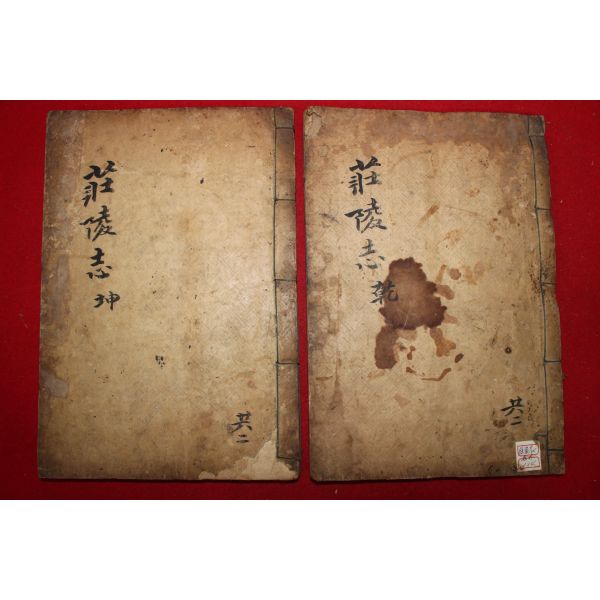 莊陵志 乾
共二
莊陵志 坤
共二